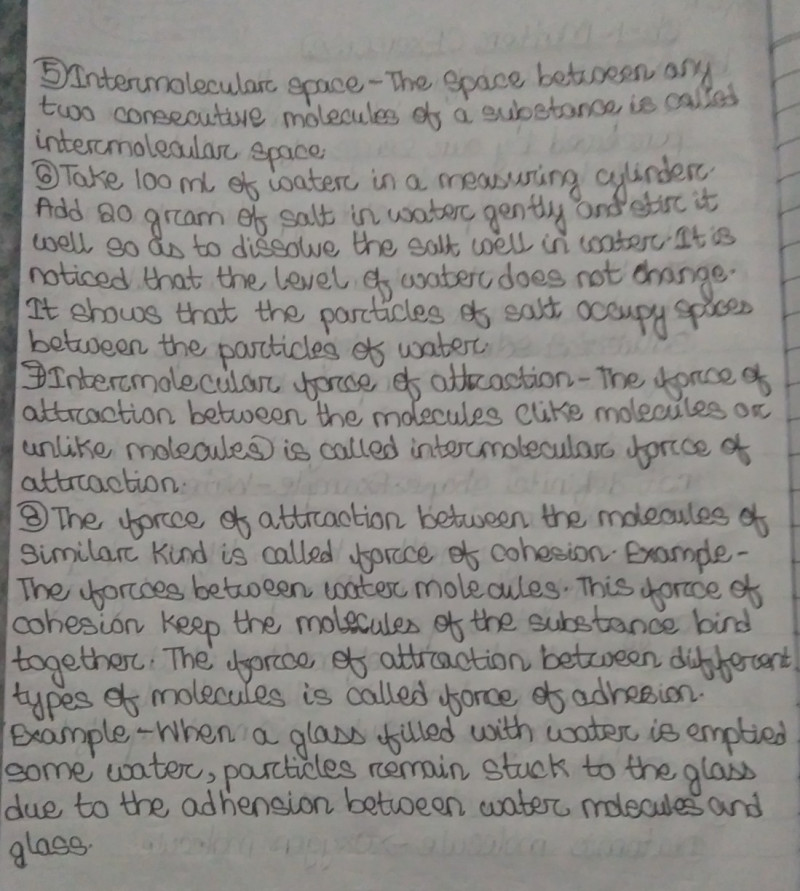 ⑤ Intermolecular space - The space between any
two consecutive molecules of a substance is called
intermolecular space
⑥ Take 100 ml of water in a measuring cylinder.
Add 20 gram of salt in water gently and stir it
well so as to dissolve the salt well in water. It is
noticed that the level of water does not change.
It shows that the particles of salt occupy spaces
between the particles of water.
⑦ Intermolecular force of attraction - The force of
attraction between the molecules (like molecules or
unlike molecules) is called intermolecular force of
attraction.
⑧ The force of attraction between the molecules of
similar kind is called force of cohesion. Example -
The forces between water molecules. This force of
cohesion keep the molecules of the substance bind
together. The force of attraction between different
types of molecules is called force of adhesion.
Example - When a glass filled with water is emptied
some water, particles remain stuck to the glass
due to the adhension between water molecules and
glass.